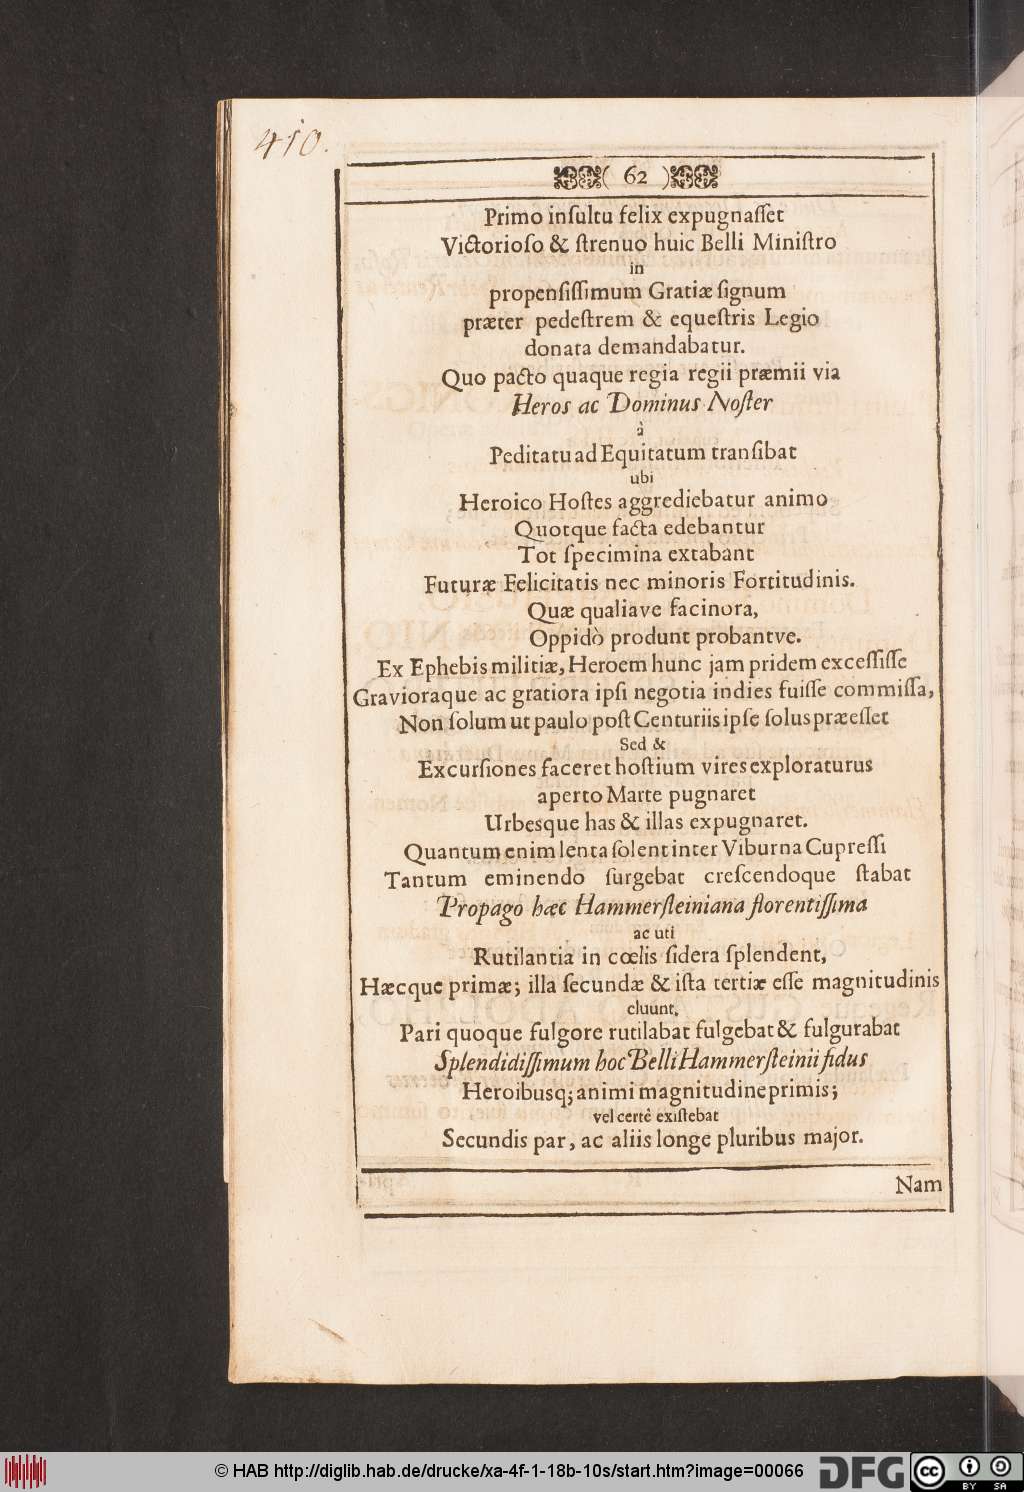 410.
( 62 )
Primo inſultu felix expugnaſſet
Victorioſo & ſtrenuo huic Belli Miniſtro
in
propenſiſſimum Gratiæ ſignum
præter pedeſtrem & equeſtris Legio
donata demandabatur.
Quo pacto quaque regia regii præmii via
Heros ac Dominus Noſter
à
Peditatu ad Equitatum tranſibat
ubi
Heroico Hoſtes aggrediebatur animo
Quotque facta edebantur
Tot ſpecimina extabant
Futuræ Felicitatis nec minoris Fortitudinis.
Quæ qualiave facinora,
Oppidò produnt probantve.
Ex Ephebis militiæ, Heroem hunc jam pridem exceſſiſſe
Gravioraque ac gratiora ipſi negotia indies fuiſſe commiſſa,
Non ſolum ut paulo poſt Centuriis ipſe ſolus præeſſet
Sed &
Excurſiones faceret hoſtium vires exploraturus
aperto Marte pugnaret
Urbesque has & illas expugnaret.
Quantum enim lenta ſolent inter Viburna Cupreſſi
Tantum eminendo ſurgebat creſcendoque ſtabat
Propago hæc Hammerſteiniana florentiſſima
ac uti
Rutilantia in cœlis ſidera ſplendent,
Hæcque primæ; illa ſecundæ & iſta tertiæ eſſe magnitudinis
cluunt,
Pari quoque fulgore rutilabat fulgebat & fulgurabat
Splendidiſſimum hoc Belli Hammerſteinii ſidus
Heroibusq; animi magnitudine primis;
vel certè exiſtebat
Secundis par, ac aliis longe pluribus major.
Nam
© HAB http://diglib.hab.de/drucke/xa-4f-1-18b-10s/start.htm?image=00066
DFG
cc
BY SA